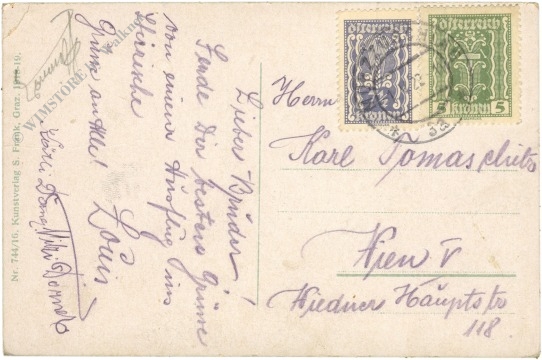 Lieber Bruder!
Sende Dir bestens Grüsse
von einem Ausflug ins
Steirische
Gruss an Alle!
Louis
WIMSTORE
Nr. 744/16. Kunstverlag S. Frank, Graz.
Österreich
Kronen
Österreich
5 Kronen 5
Herrn
Karl Tomaschitz
Wien V
Wiedner Hauptstr
118